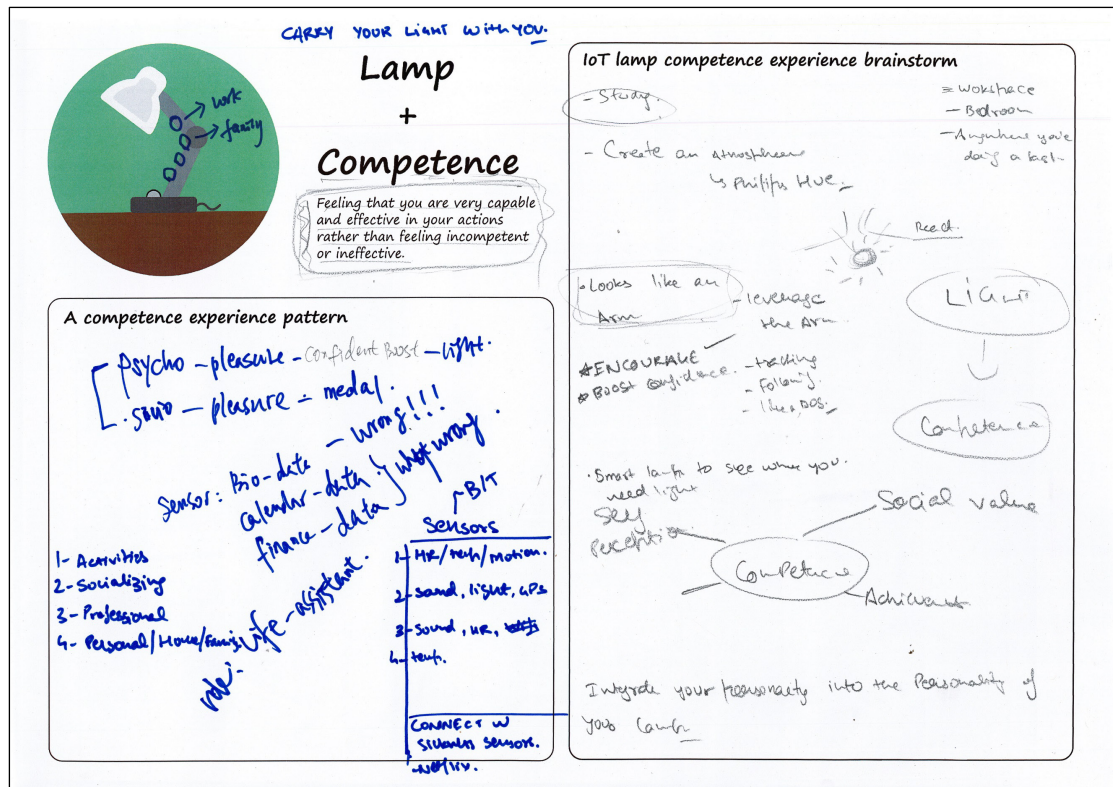 CARRY YOUR LIGHT WITH YOU.
Lamp
+
Competence
Feeling that you are very capable
and effective in your actions
rather than feeling incompetent
or ineffective.
work
family
A competence experience pattern
Psycho - pleasure - Confident Boost - light.
- pleasure - medal.
Sensor: Bio-data - wrong!!!
calendar-data
finance-data
what wrong
1- Activities
2- Socializing
3- Professional
4- Personal/Home/Family
role: life-assistant.
BIT
Sensors
1- HR/temp/motion.
2- sound, light, GPS
3- sound, HR,
4- temp.
CONNECT W
sensors.
IoT lamp competence experience brainstorm
- Study.
- Create an Atmosphere
↳ Philips Hue.
= Workspace
- Bedroom
- Anywhere you're
doing a task
React.
• Looks like an
Arm
- leverage
the Arm
* ENCOURAGE
* BOOST confidence.
- tracking
- Following.
- like a DOG.
LIGHT
Competence
• Smart lamp to see where you
need light
Self
Perception
Social value
Competence
Integrate your personality into the Personality of
your lamp